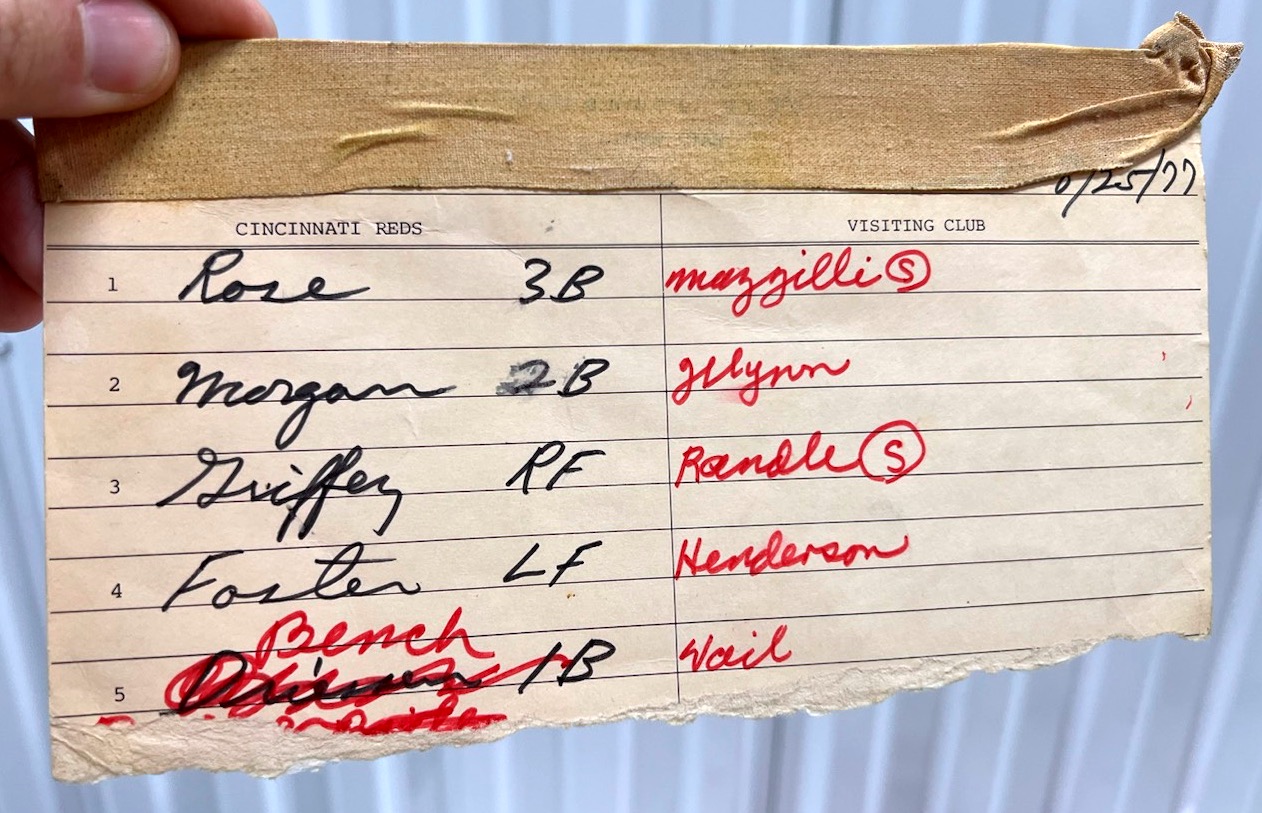 /25/77
CINCINNATI REDS VISITING CLUB
1 Rose 3B Mazzilli S
2 Morgan 2B Flynn
3 Griffey RF Randle S
4 Foster LF Henderson
Bench
5 Driessen 1B Vail